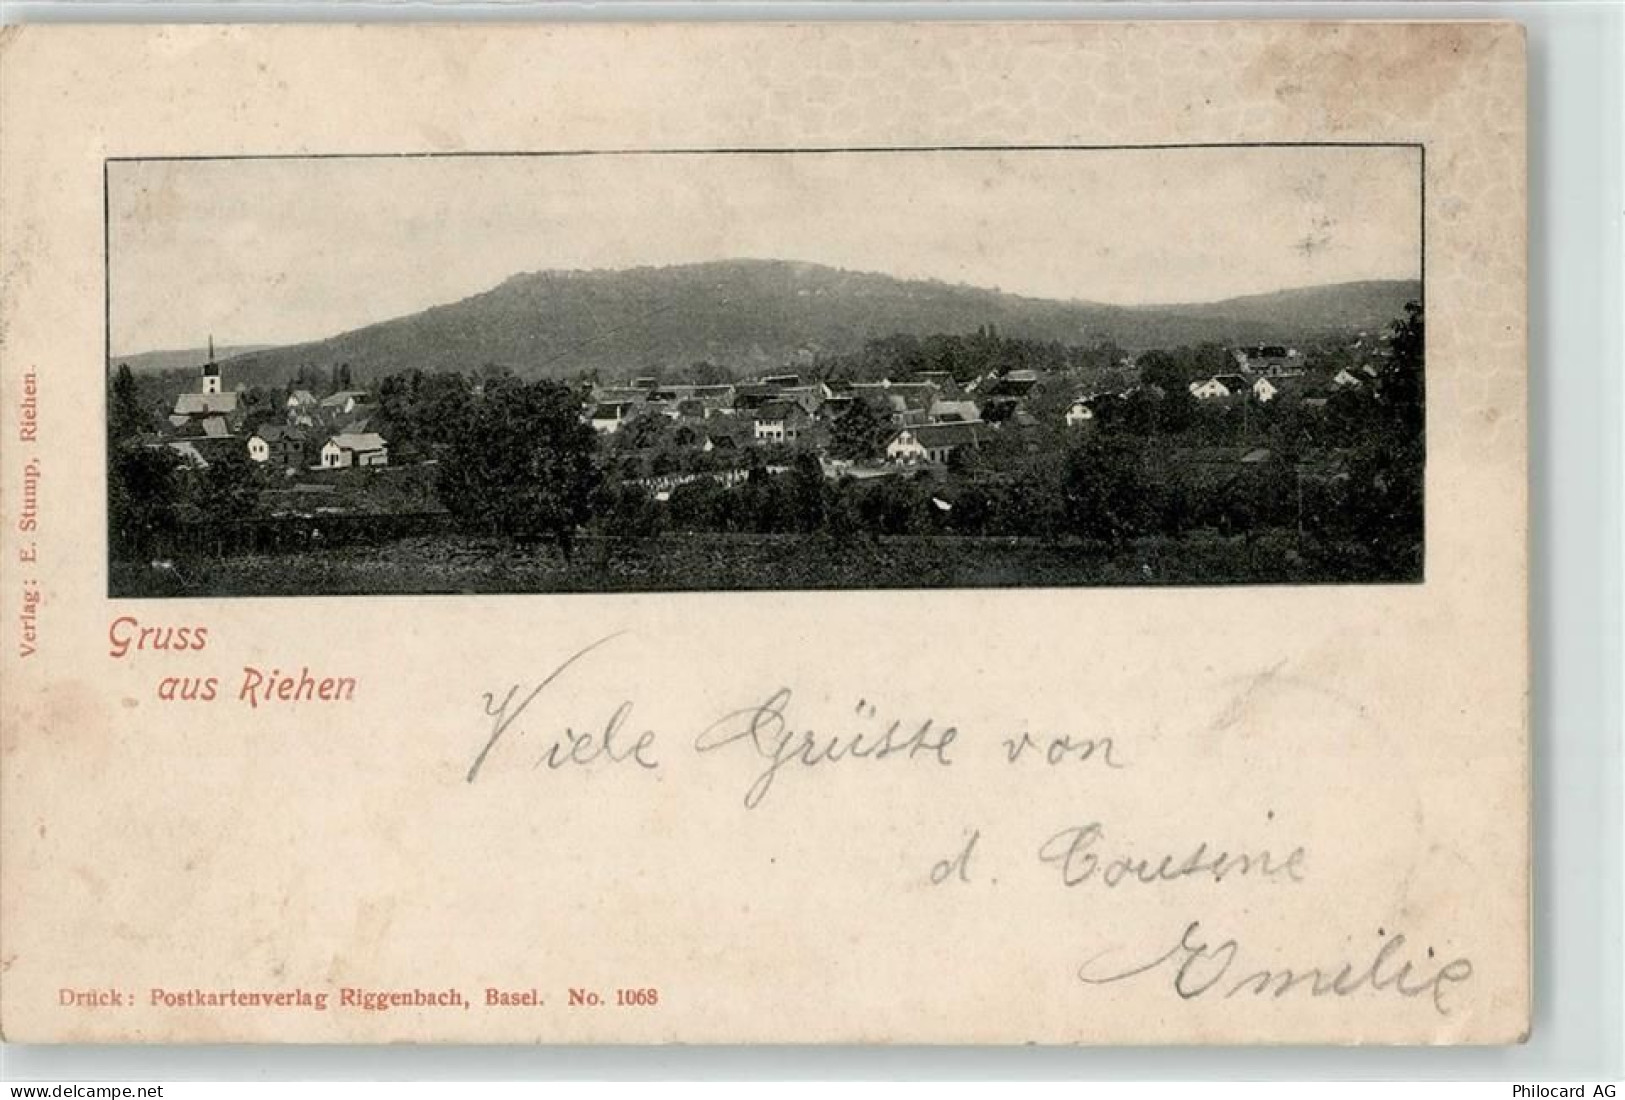 Verlag: E. Stump, Riehen.
Gruss
aus Riehen
Viele Grüsse von
d. Cousine
Emilie
Druck: Postkartenverlag Riggenbach, Basel. No. 1068
www.delcampe.net
Philocard AG